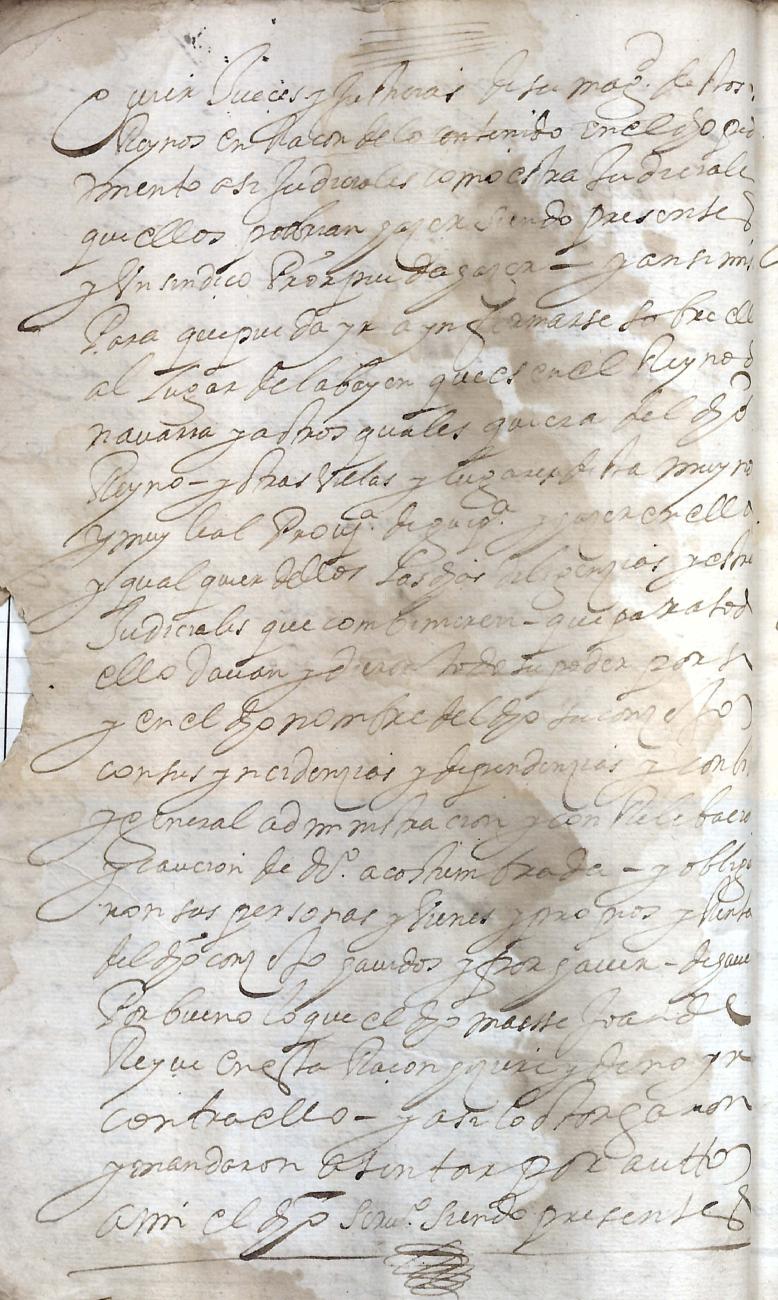 quier Jueces y Justicias de su mag.d destos
Reynos en Racon de lo contenido en el dho pedi
mento asi Judiciales como estra Judiciales
que ellos podrian hazer siendo presentes
y Un sindico Pror puede hazer – y ansi mis
Para que pueda yr a ynformarse sobre ello
al lugar de labayen que es en el Reyno de
navarra y a otros quales quiera del dho
Reyno – y otras Villas y lugares desta muy no
y muy leal Prouja de guipa y hazer en ello
y qual quier dellos las dhas diligenzias y estra
Judiciales que combinieren – que para todo
ello dauan y dieron todo su poder por si
y en el dho nombre del dho su conzejo
con sus yncidenzias y dependenzias y con li
y general administracion y con Releuacio
y caucion de dro acostumbrada – y obliga
ron sus personas y Vienes y propios y Rentas
del dho conzejo hauidos y por hauer – de hauer
Por bueno lo que el dho maesse Joan de
en esta Racon hiziere y de no yr
contra ello – y asi lo otorgaron
y mandaron asentar por autto
a mi el dho scriuo siendo presentes